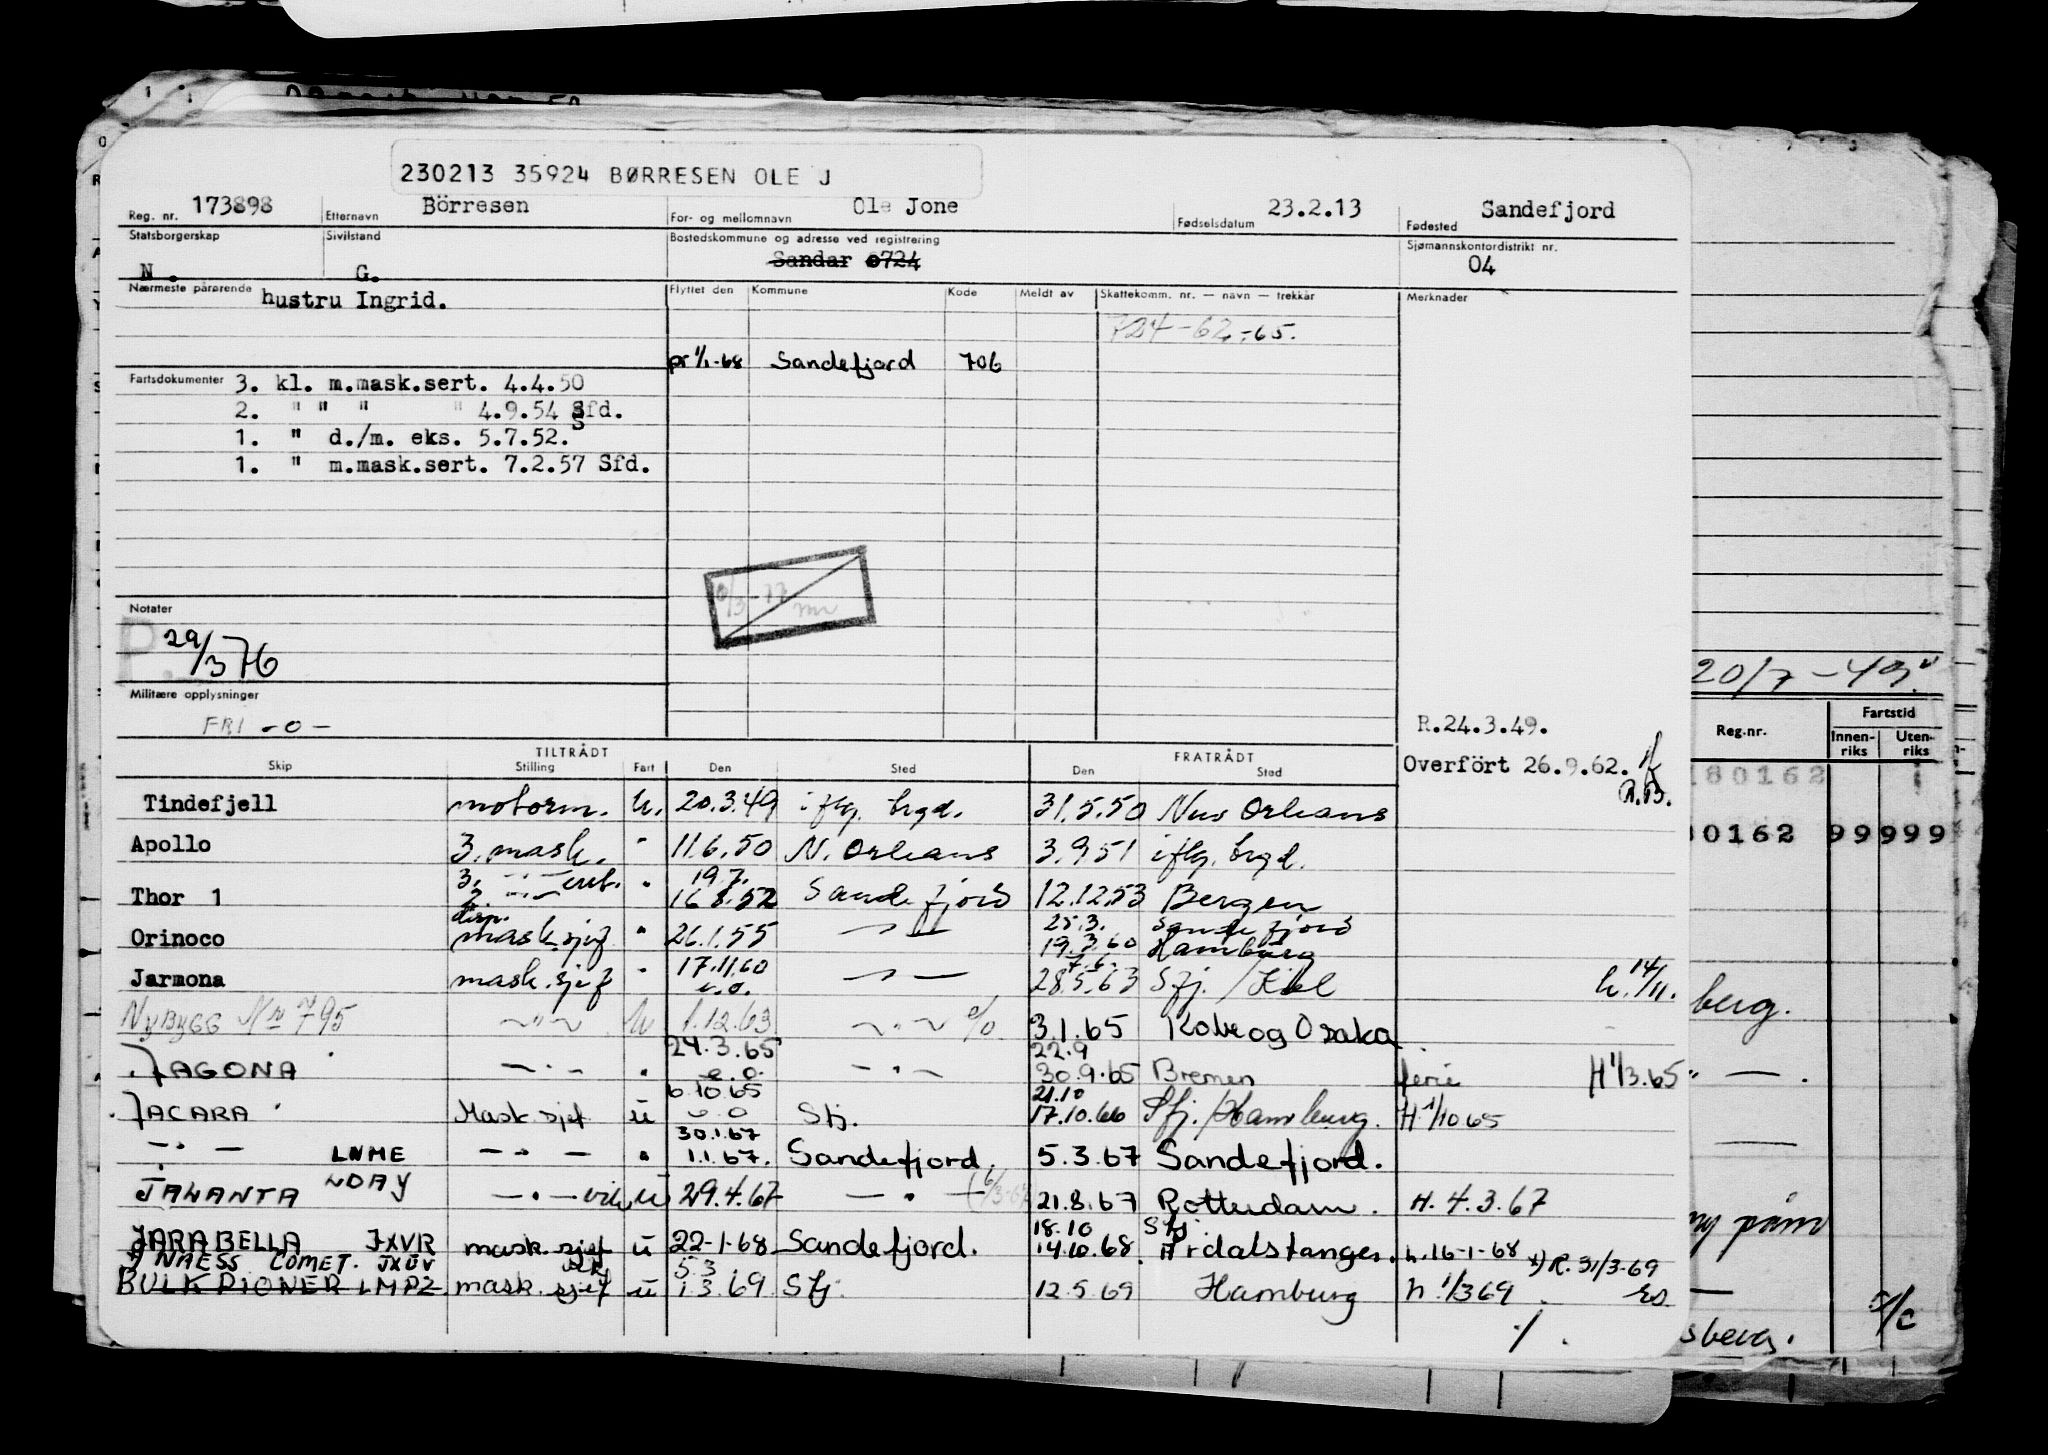 230213 35924 BØRRESEN OLE J
Reg. nr. 173898 Etternavn Börresen For- og mellomnavn Ole Jone Fødselsdatum 23.2.13 Fødested Sandefjord
Statsborgerskap N. Sivilstand G. Bostedskommune og adresse ved registrering Sandar 0724 Sjømannskontordistrikt nr. 04
Nærmeste pårørende hustru Ingrid.
Flyttet den Kommune Kode Meldt av Skattekomm. nr. — navn — trekkår Merknader
724-62-65.
pr 1/1-68 Sandefjord 706
Fartsdokumenter 3. kl. m.mask.sert. 4.4.50
2. " " " " 4.9.54 Sfd.
1. " d./m. eks. 5.7.52.
1. " m.mask.sert. 7.2.57 Sfd.
Notater
P. 29/3 76
Militære opplysninger
FRI -0-
R.24.3.49.
20/7-49
Overført 26.9.62.
R.B.
TILTRÅDT FRATRÅDT
Skip Stilling Fart Den Sted Den Sted
Reg.nr. Fartstid Innen-riks Uten-riks
180162
00162 99999
Tindefjell motorm. u. 20.3.49 iflg. bregd. 31.5.50 New Orleans
Apollo 3. mask. " 11.6.50 N. Orleans 3.9.51 iflg. bregd.
Thor 1 3. 2. " 19.7. 16.8.52 Sandefjord 12.12.53 Bergen
Orinoco disp. mask.sjef " 26.1.55 — " — 25.3. 19.3.60 Sandefjord Hamburg
Jarmona mask.sjef " 17.11.60 e.o. — " — 7.6. 28.5.63 Sfj./Kiel h. 14/11.
NYBYGG Nr 795 — " — u 1.12.63 — " — e/o 3.1.65 Kobe og Osaka
JAGONA — " — " 24.3.65 e.o. — " — 22.9 30.9.65 Bremen ferie H 1/3.65
JACARA Mask.sjef u 6.10.65 e.o Sfj. 21.10 17.10.66 Sfj./Hamburg. H.1/10 65
— " — LNME — " — " 30.1.67 1.1.67. Sandefjord. 5.3.67 Sandefjord.
JAWANTA LDAY — " — vik u 29.4.67 — " — (6/3-67) 21.8.67 Rotterdam. H. 4.3.67
JARABELLA JXVR mask.sjef u 22-1-68 Sandefjord. 18.10 14.10.68 Sfj. Årdalstangen. h.16-1-68
NAESS COMET. JXUV 5.3 x) R. 31/3-69
BULK PIONER LMPZ mask.sjef u 1.3.69 Sfj. 12.5.69 Hamburg h 1/3 69
berg.
sberg.